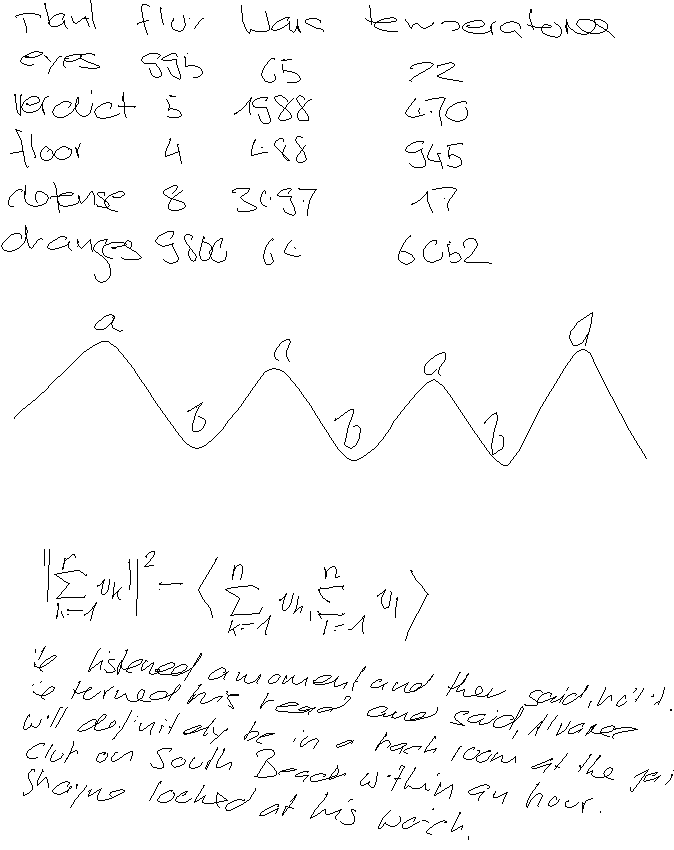 Plant flux Wars temperatures
eyes 995 65 72
verdict 5 1988 470
floor 4 488 945
defense 8 3497 17
oranges 9800 64 6052
a a a a
b b b
‖∑_{k=1}^{n} v_k‖² − ⟨∑_{k=1}^{n} v_k, ∑_{l=1}^{n} v_l⟩
He listened a moment and then said, hold it.
He turned his head and said, Alvarez
will definitely be in a back room at the jai
club on South Beach within an hour.
Shayne looked at his watch.